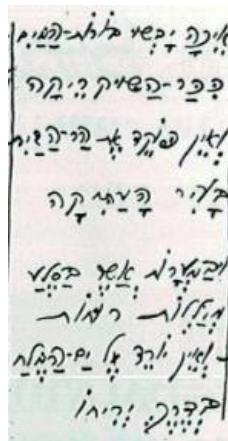 אֵיכָה יָבְשׁוּ בּוֹרוֹת-הַמַּיִם
כִּכַּר-הַשּׁוּק רֵיקָה
וְאֵין פּוֹקֵד אֶת הַר-הַבַּיִת
בָּעִיר הָעַתִּיקָה
וּבַמְּעָרוֹת אֲשֶׁר בַּסֶּלַע
מְיַלְּלוֹת רוּחוֹת
וְאֵין יוֹרֵד אֶל יַם-הַמֶּלַח
בְּדֶרֶךְ יְרִיחוֹ